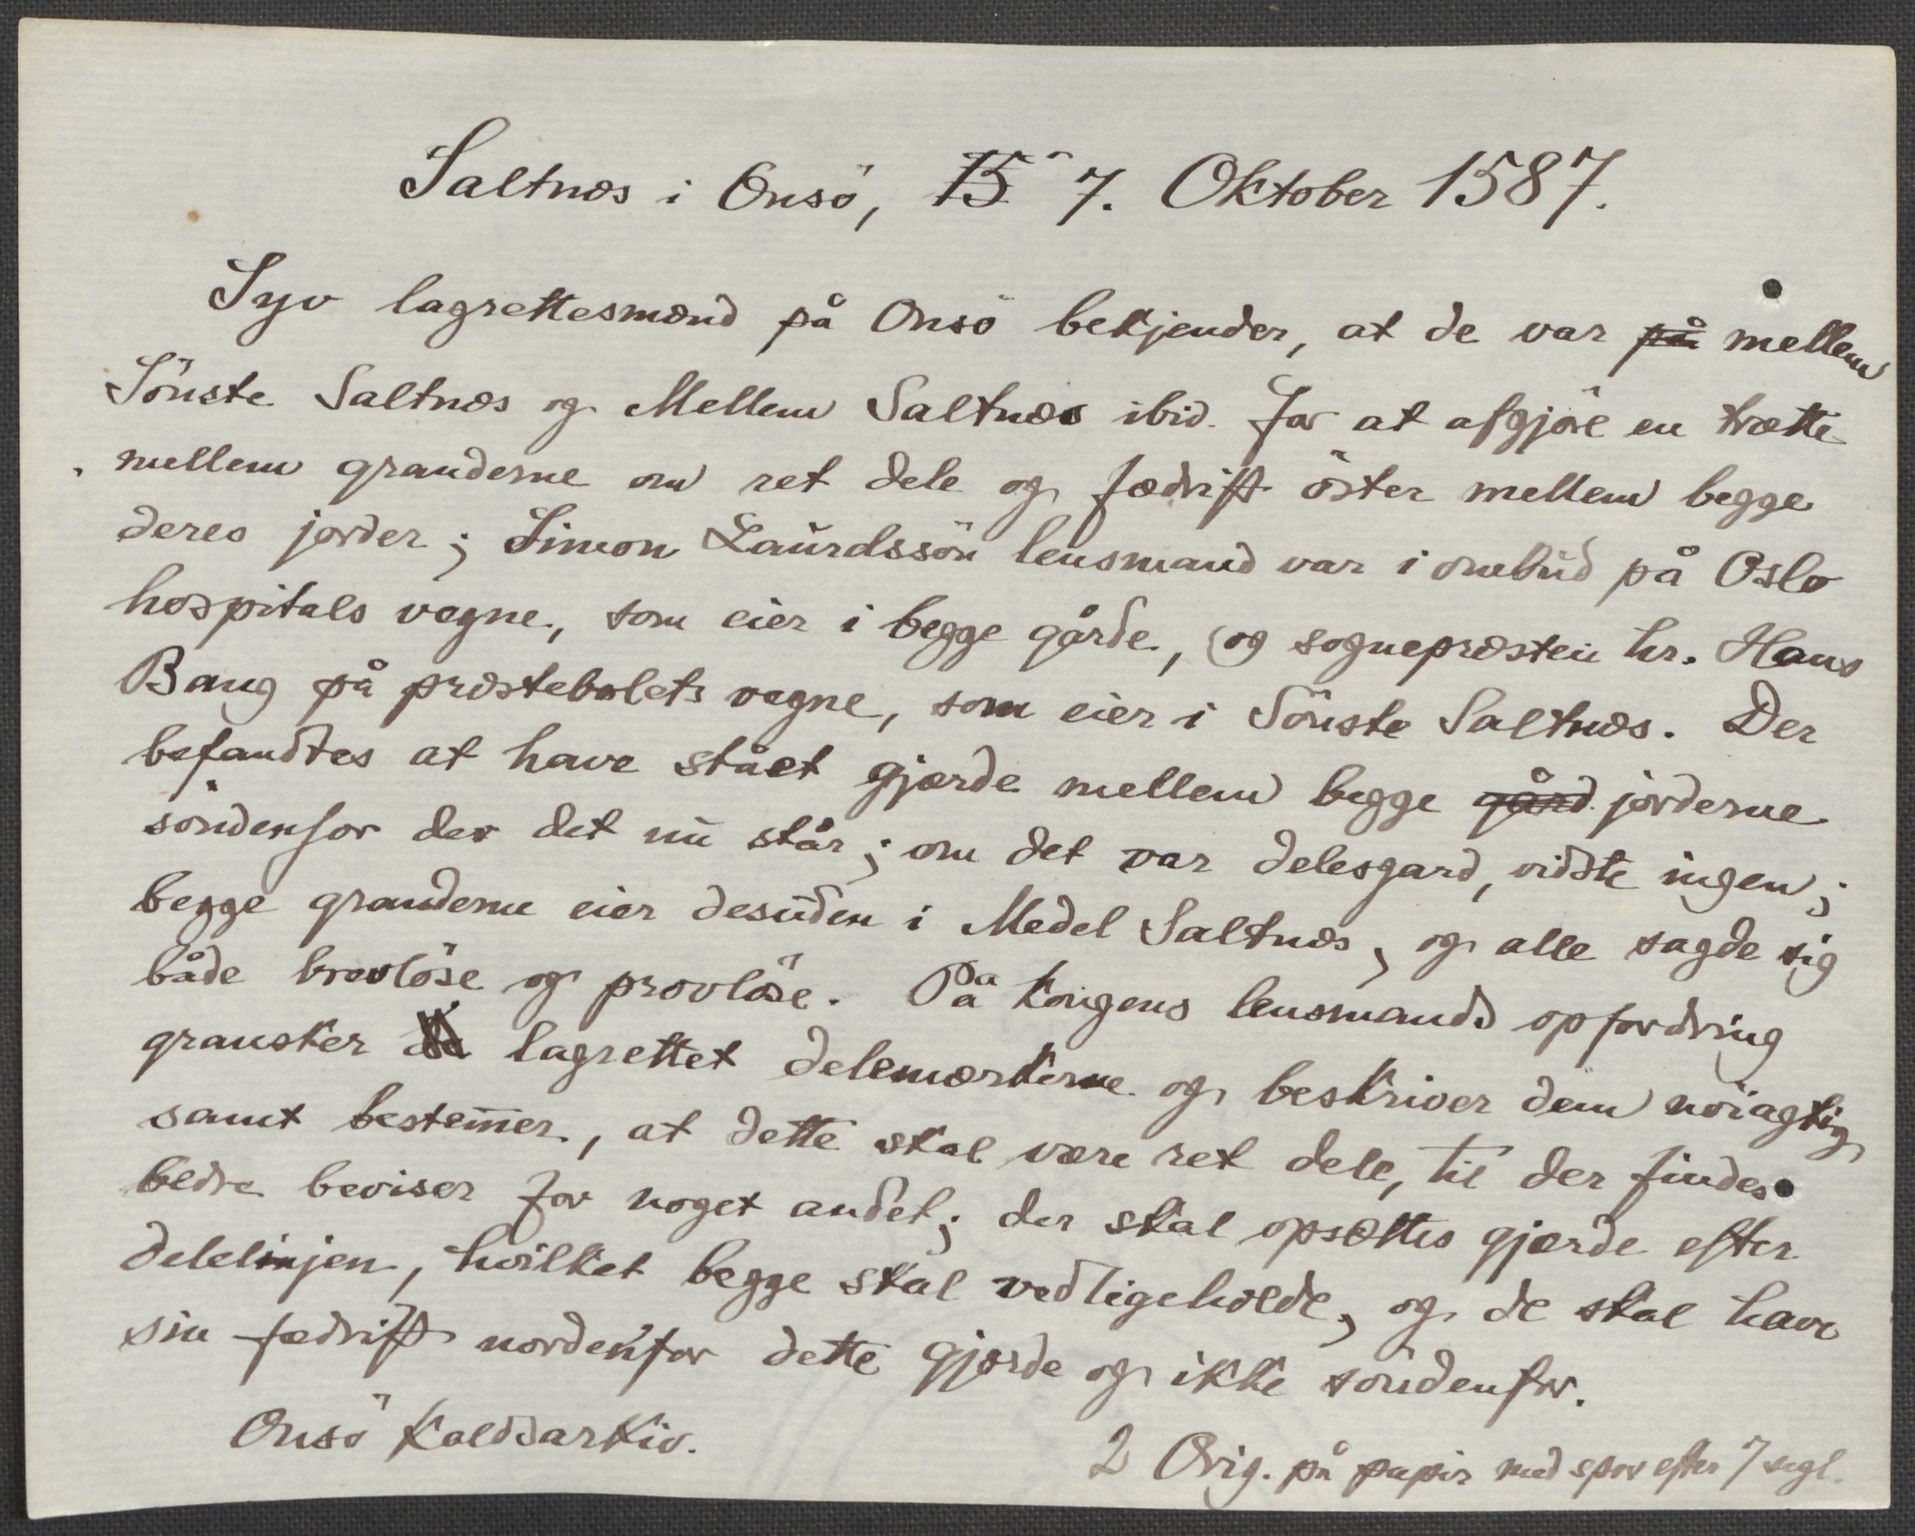 Saltnæs i Onsö, 15 7. Oktober 1587.
Syv lagrettesmænd på Onsö bekjender, at de var på mellem
Sönste Saltnæs og Mellem Saltnæs ibid. for at afgjöre en trætte
mellem granderne om ret dele og fædrift öster mellem begge
deres jorder; Simon Laurdssön lensmand var i ombud på Oslo
hospitals vegne, som eier i begge gårde, og sognepræsten hr. Hans
Bang på præstebolets vegne, som eier i Sönste Saltnæs. Der
befandtes at have stået gjærde mellem begge gård jorderne
söndenfor der det nu står; om det var delesgard, vidste ingen;
begge granderne eier desuden i Medel Saltnæs, og alle sagde sig
både brevlöse og provlöse. På kongens lensmands opfordring
gransker de lagrettet delemærkerne og beskriver dem nöiagtig
samt bestem̅er, at dette skal være ret dele, til der findes
bedre beviser for noget andet; der skal opsættes gjærde efter
delelinjen, hvilket begge skal vedligeholde, og de skal have
sin fædrift nordenfor dette gjærde og ikke söndenfor.
Onsö kaldsarkiv.
2 Orig. på papir med spor efter 7 segl.